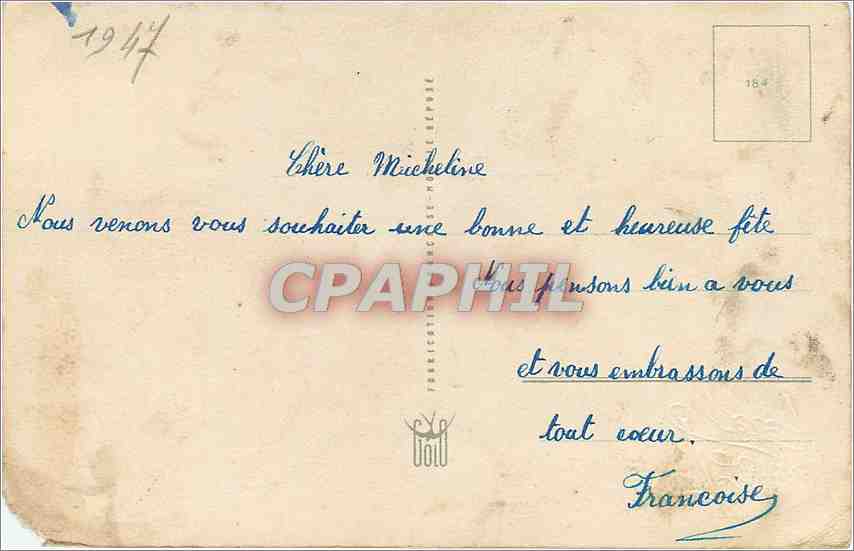 1947
184
Chère Micheline
Nous venons vous souhaiter une bonne et heureuse fête
Nous pensons bien a vous
et vous embrassons de
tout cœur.
Francoise
FABRICATION FRANÇAISE - MODÈLE DÉPOSÉ
CPAPHIL